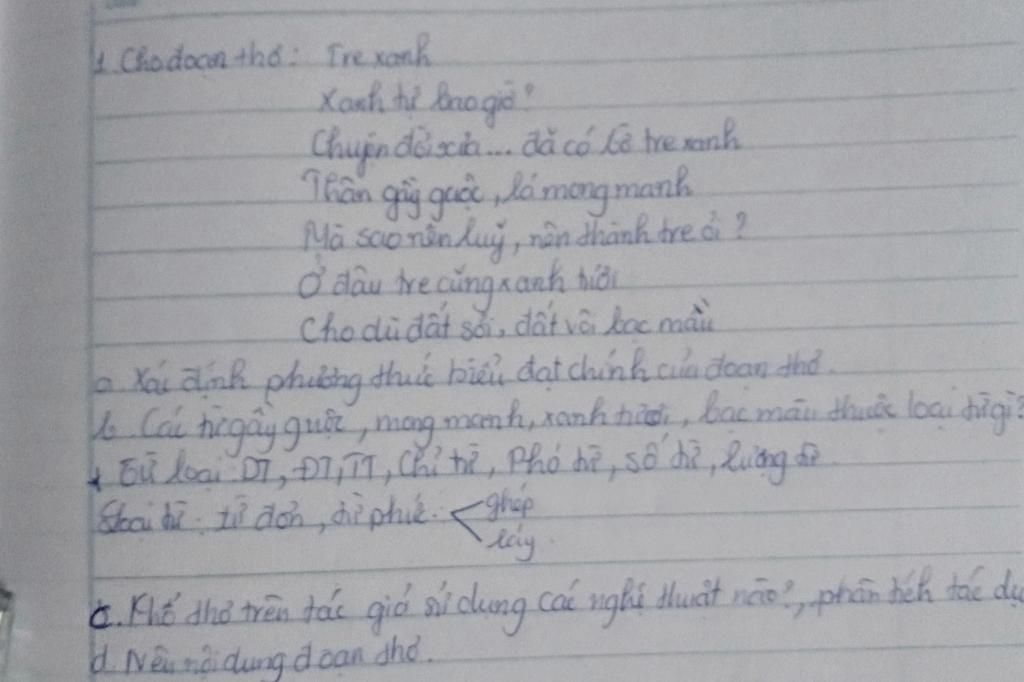 1. Cho đoạn thơ: Tre xanh
Xanh tự bao giờ?
Chuyện đời xưa... đã có bờ tre xanh
Thân gầy guộc, lá mong manh
Mà sao nên luỹ, nên thành tre ơi?
Ở đâu tre cũng xanh tươi
Cho dù đất sỏi, đất vôi bạc màu
a. Xác định phương thức biểu đạt chính của đoạn thơ.
b. Các từ gầy guộc, mong manh, xanh tươi, bạc màu thuộc loại từ gì?
+ Từ loại DT, ĐT, TT, Chỉ từ, Phó từ, số từ, lượng từ
loại từ: từ đơn, từ phức < ghép
láy.
c. Khổ thơ trên tác giả sử dụng các nghệ thuật nào?, phân tích tác dụ
d. Nêu nội dung đoạn thơ.